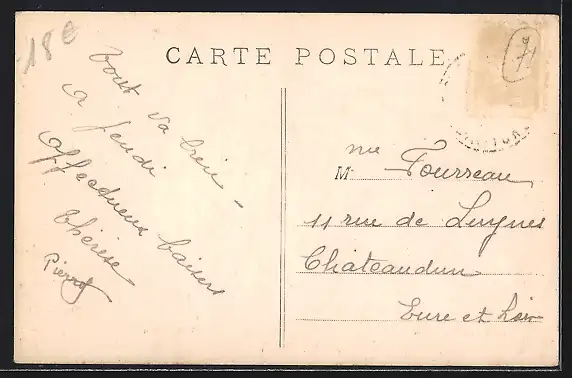 18€
CARTE POSTALE
7
Tout va bien -
a jeudi
affectueux baisers
Thérèse
Pierrot
Mme Fourreau
11 rue de Luynes
Chateaudun
Eure et Loir